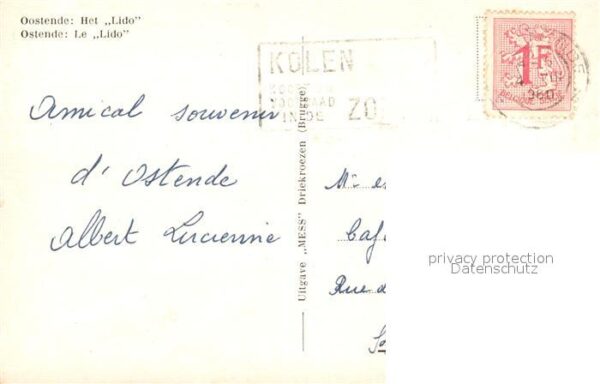 Oostende: Het „Lido"
Ostende: Le „Lido"
KOLEN
ZO
1F
BELGIE-BELGIQUE
1960
Amical souvenir
d'Ostende
Albert Lucienne
Uitgave „MESS" Driekroezen (Brugge)
Mr
Caf
Rue d
privacy protection
Datenschutz